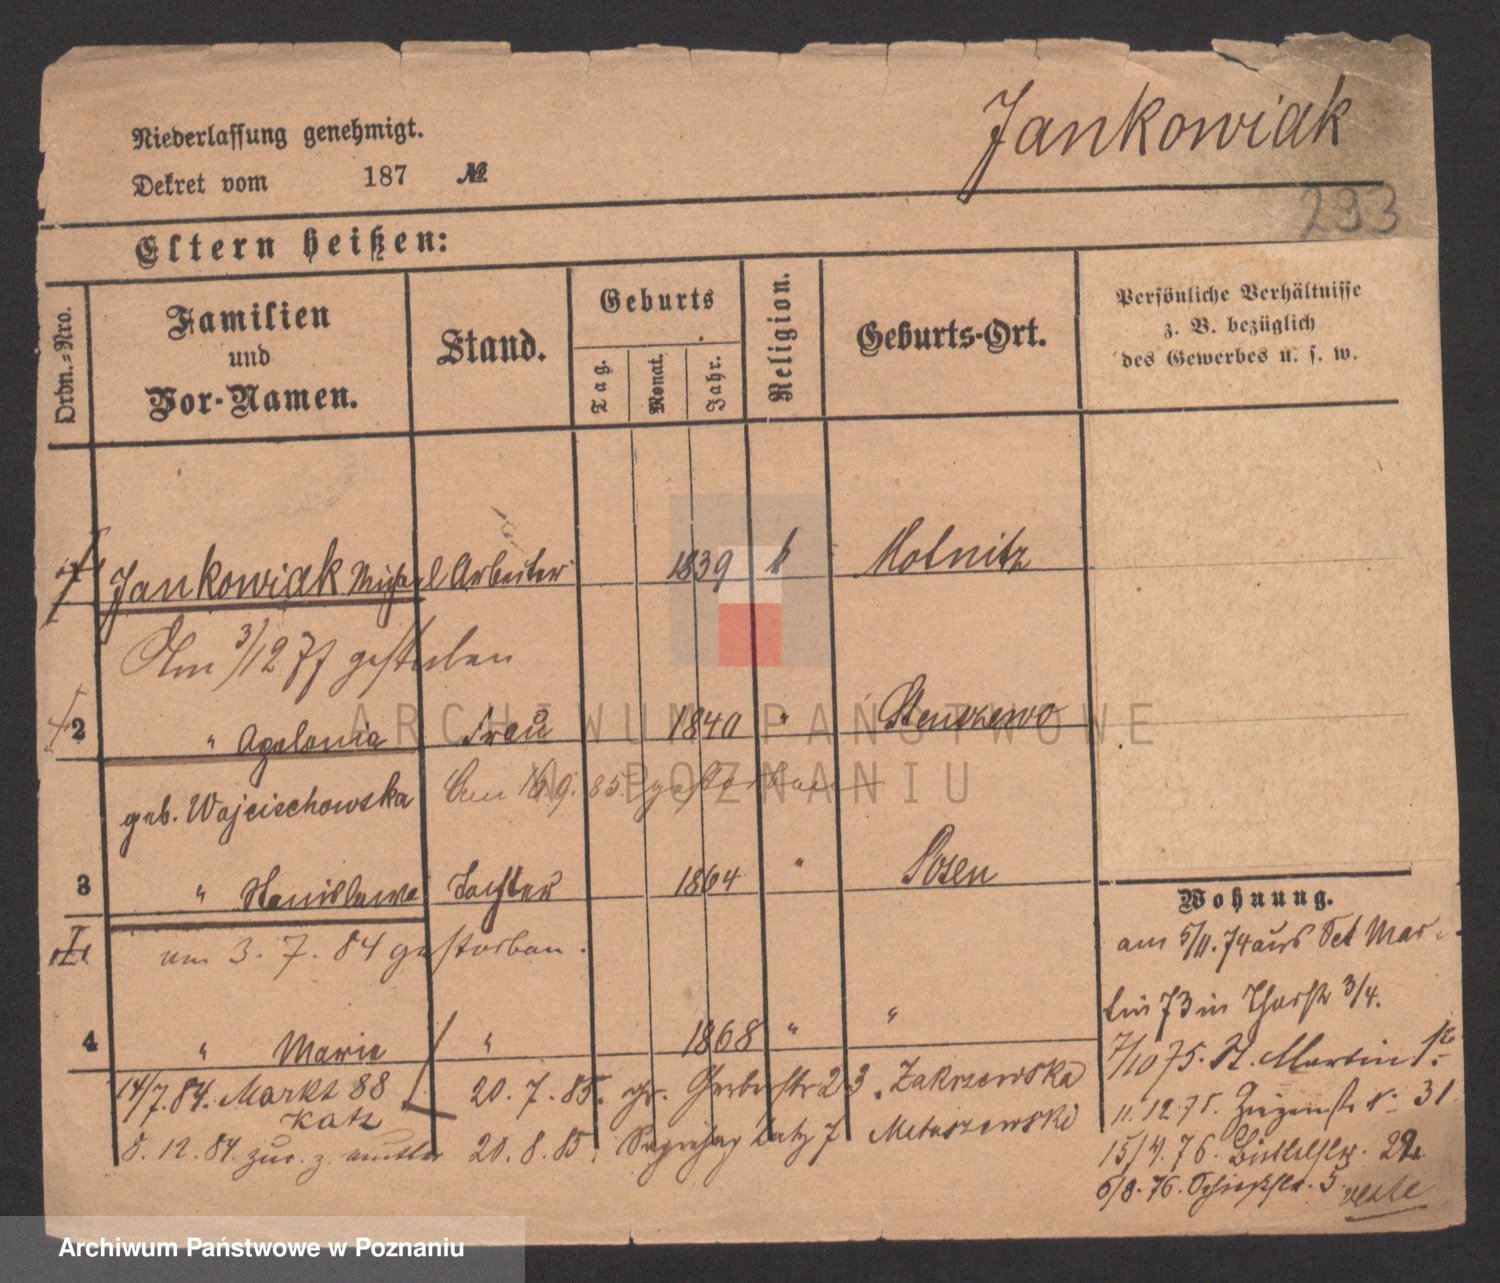 Jankowiak
Niederlassung genehmigt.
Dekret vom 187 №
293
Eltern heißen:
Ordn.-Nro.
Familien
und
Vor-Namen.
Stand.
Geburts
Tag.
Monat.
Jahr.
Religion.
Geburts-Ort.
Persönliche Verhältnisse
z. B. bezüglich
des Gewerbes u. s. w.
1 Jankowiak Michael Arbeiter 1839 k
Am 3/12 77 gestorben
2 " Apolonia Frau 1840 " Stenszewo
geb. Wojciechowska Am 16/9. 85. gestorben
3 " Stanislawa Tochter 1864 " Posen
am 3. 7. 84 gestorben.
4 " Marie " 1868 " "
14/7. 84. Markt 88
Katz
20. 7. 85. gr. Gerberstr 23. Zakrzewska
8. 12. 84. zur. z. Mutter
20. 8. 85. 7 Mataszewski
Wohnung.
am 5/11. 74 aus Set Mar-
tin 73 in 3/4.
7/10 75. St. Martin
11. 12. 75. 31
15/4. 76. 22.
6/8. 76. Schießstr. 5.
ARCHIWUM PAŃSTWOWE
W POZNANIU
Archiwum Państwowe w Poznaniu